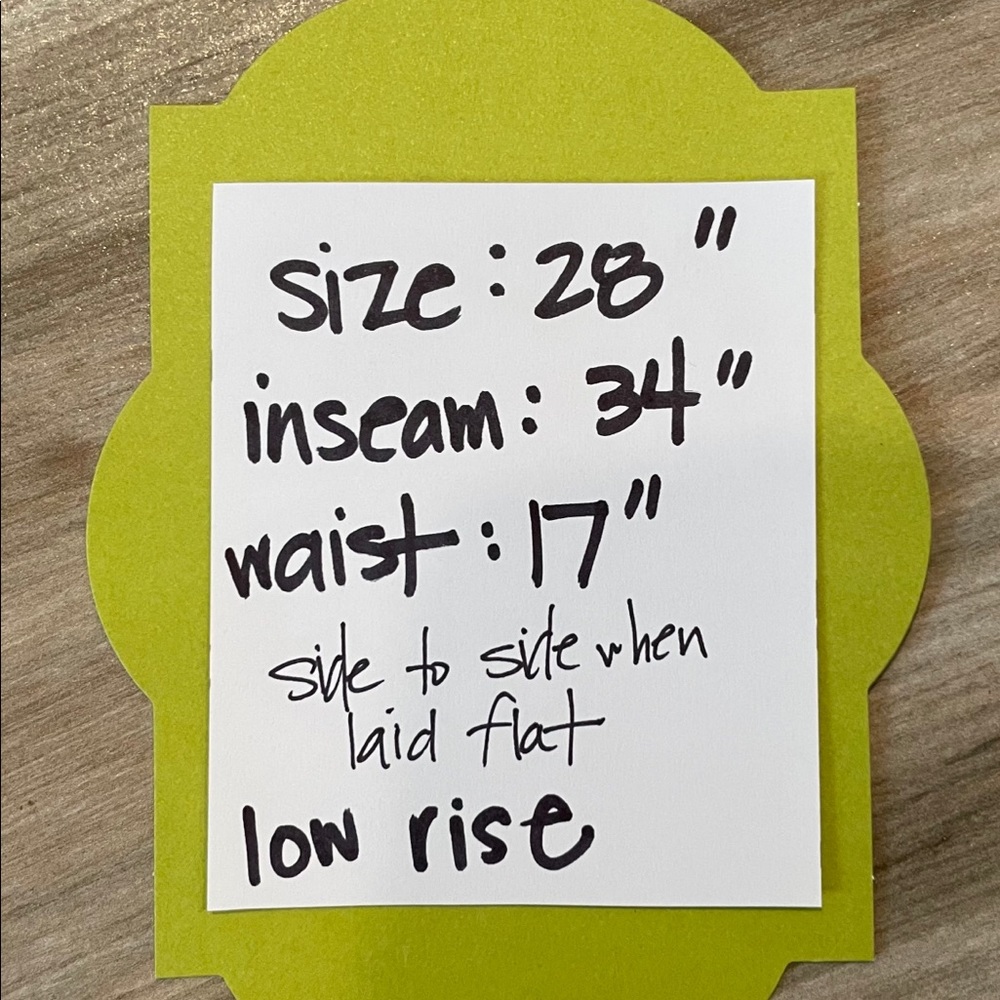 size: 28"
inseam: 34"
waist: 17"
side to side when
laid flat
low rise